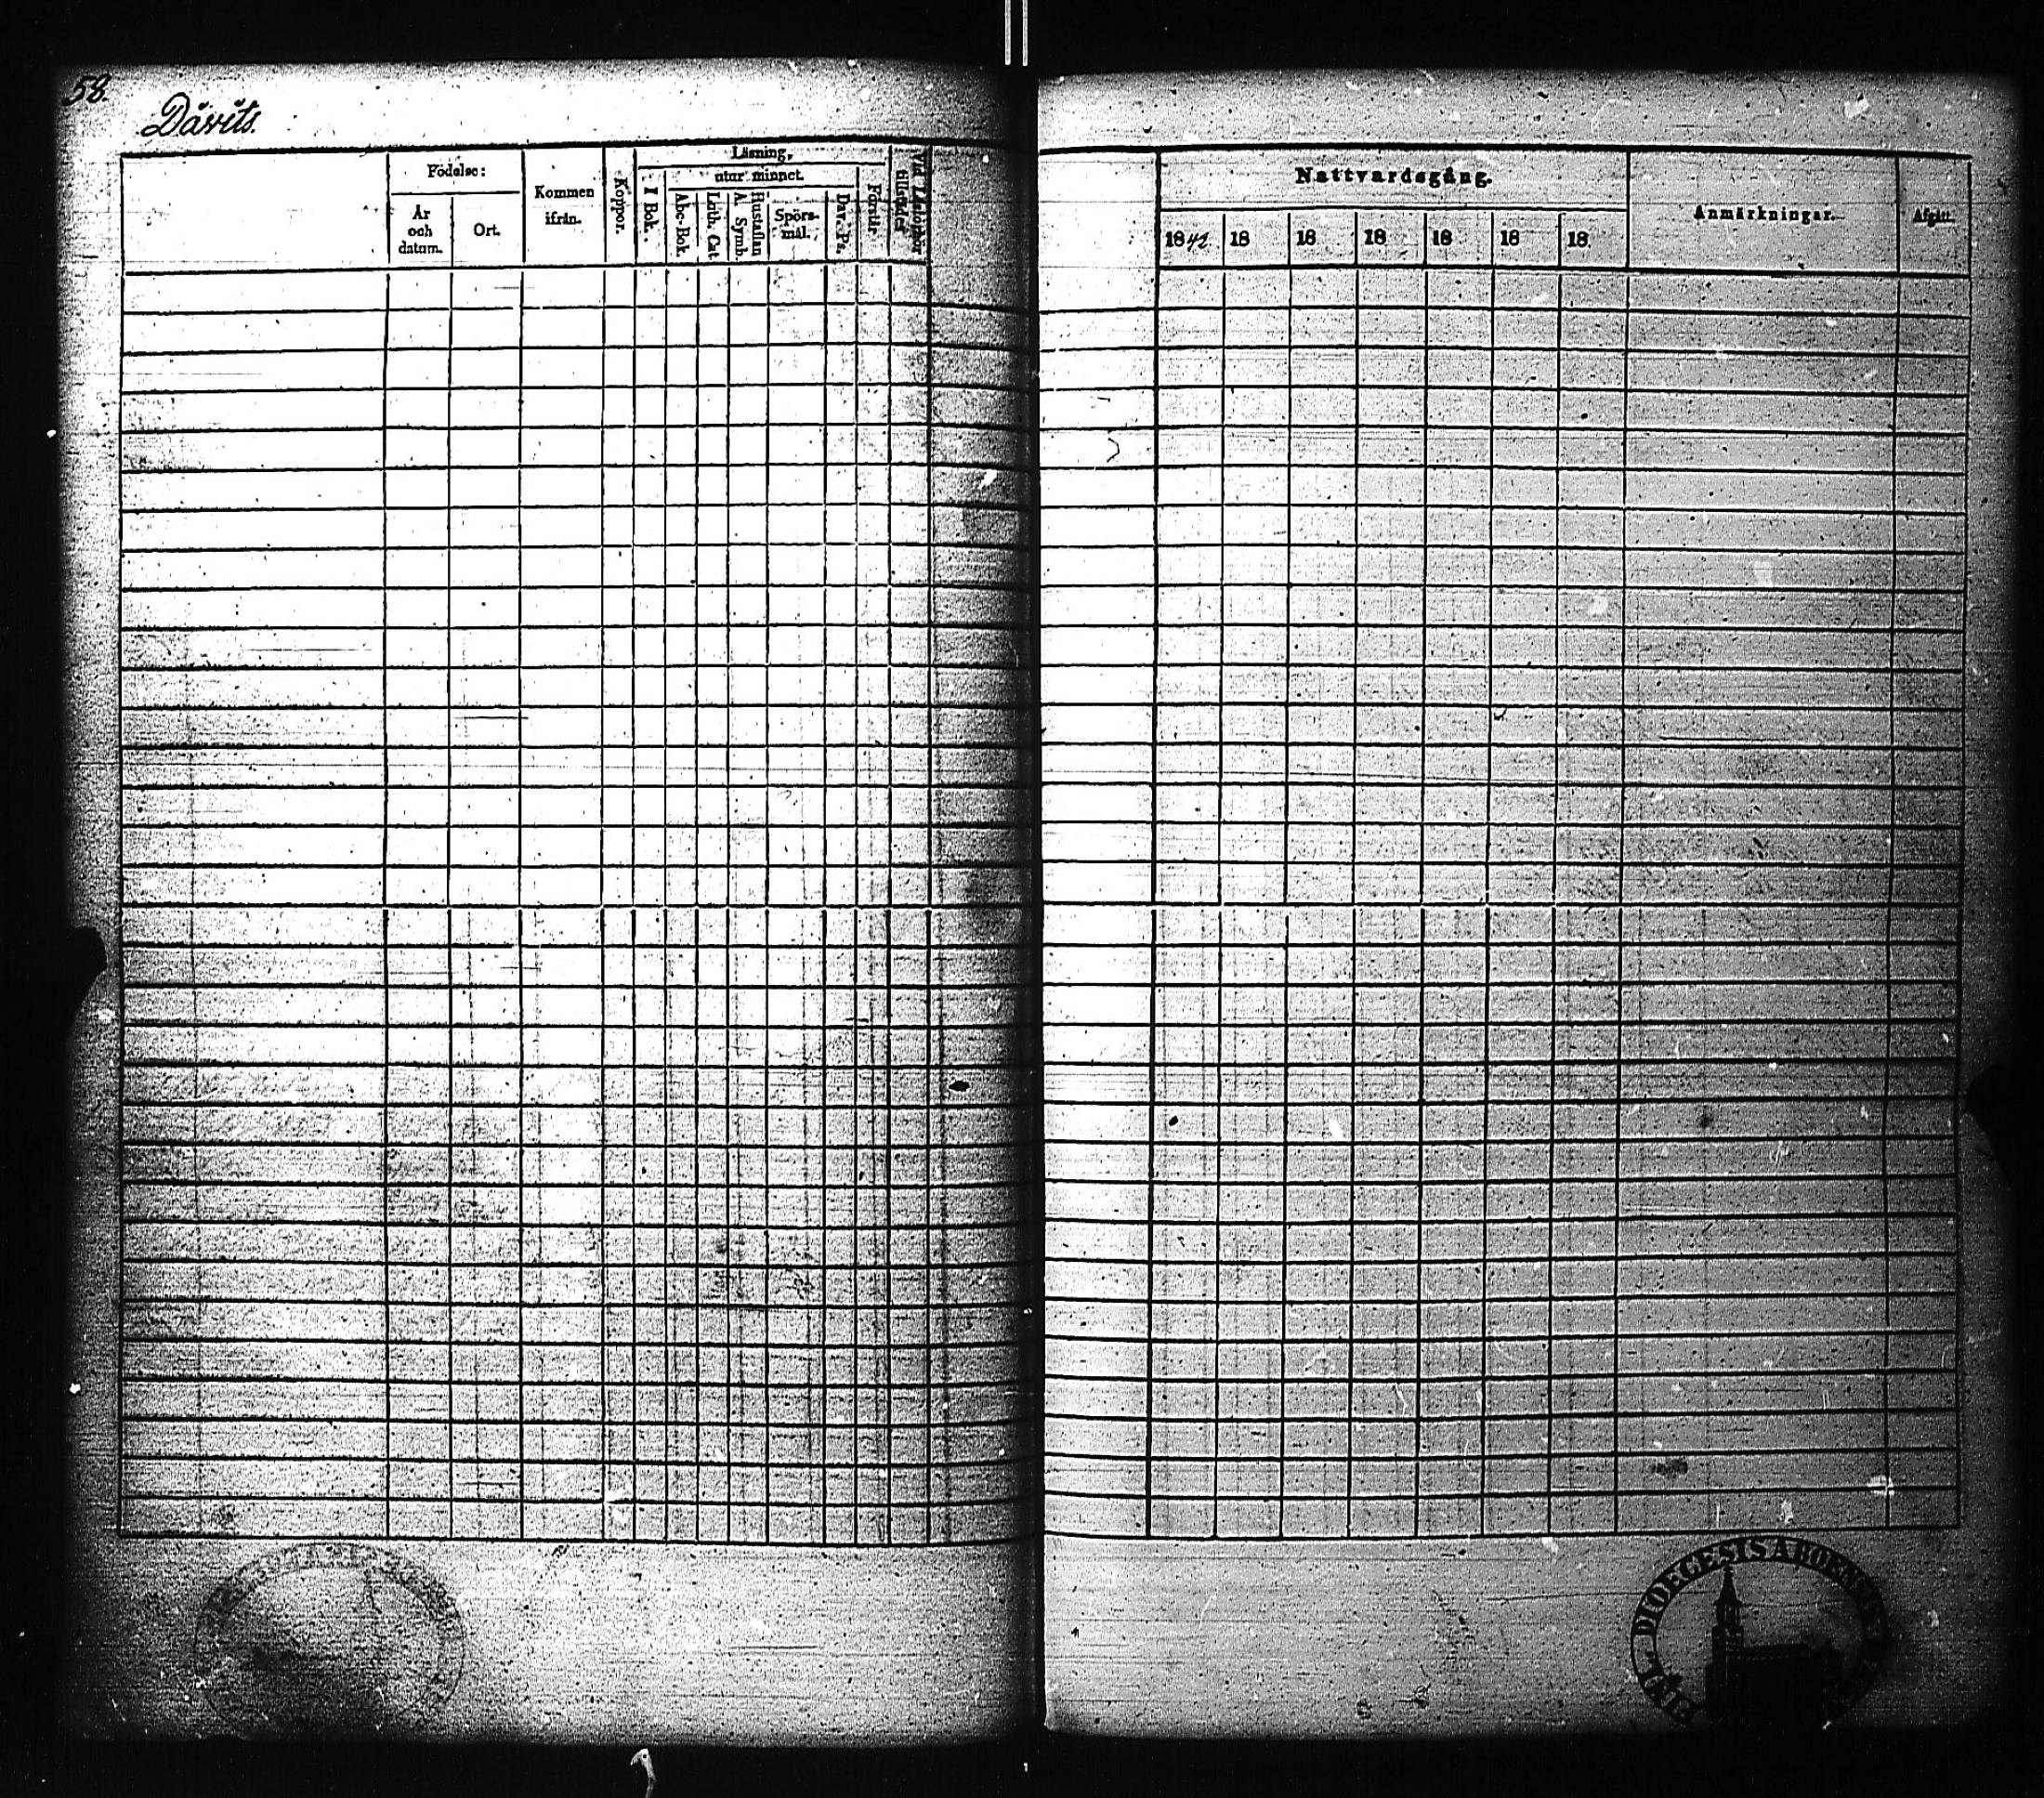 58.
Dåvits.
Födelse:
År
och
datum.
Ort.
Kommen
ifrån.
Koppor.
Läsning,
utur minnet.
I Bok.
Abc-Bok.
Luth. Cat.
Hustaflan
A. Symb.
Spörs-
mål.
Dav. Ps.
Förstår
Vid Läsförhör
tillstädes
Nattvardsgång.
1842
18
18
18
18
18
18
Anmärkningar.
Afgått.
DIOECESIS ABOENSIS